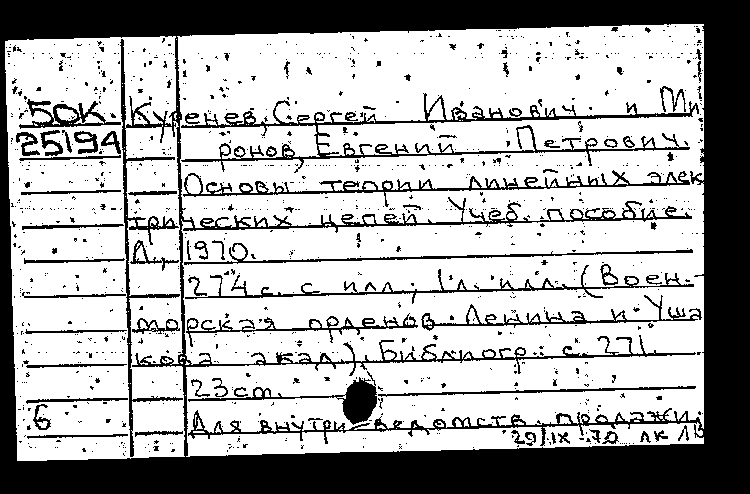 50к. Куренев, Сергей Иванович. и Ми
25194 ронов, Евгений Петрович.
Основы теории линейных элек
трических цепей. Учеб. пособие.
Л., 1970.
274 с. с илл.; 1 л. илл. (Воен.-
морская орденов Ленина и Уша
кова акад.). Библиогр.: с. 271.
23 cm.
6 Для внутри-ведомств. продажи.
29/IX 70 ЛК ЛВ